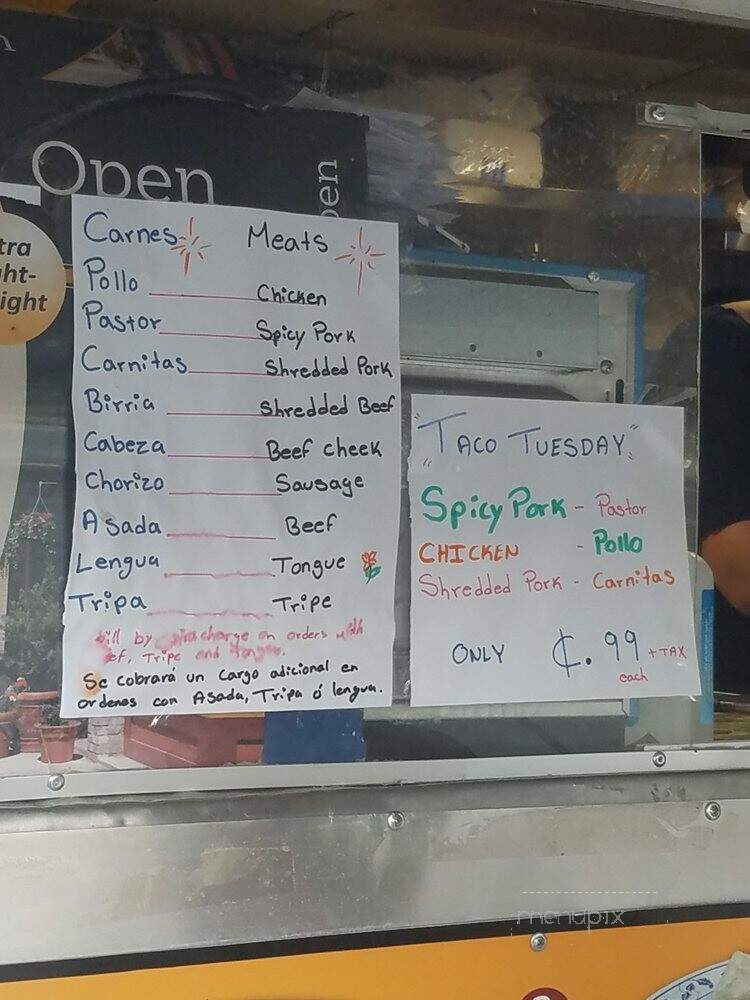 Open
pen
tra
ht-
ight
Carnes Meats
Pollo Chicken
Pastor Spicy Pork
Carnitas Shredded Pork
Birria Shredded Beef
Cabeza Beef cheek
Chorizo Sausage
Asada Beef
Lengua Tongue
Tripa Tripe
bill by charge on orders with
ef, Tripe and Tongue.
Se cobrará un cargo adicional en
ordenes con Asada, Tripa ó lengua.
"TACO TUESDAY"
Spicy Pork - Pastor
CHICKEN - Pollo
Shredded Pork - Carnitas
ONLY ₵.99 + TAX
each
menupix